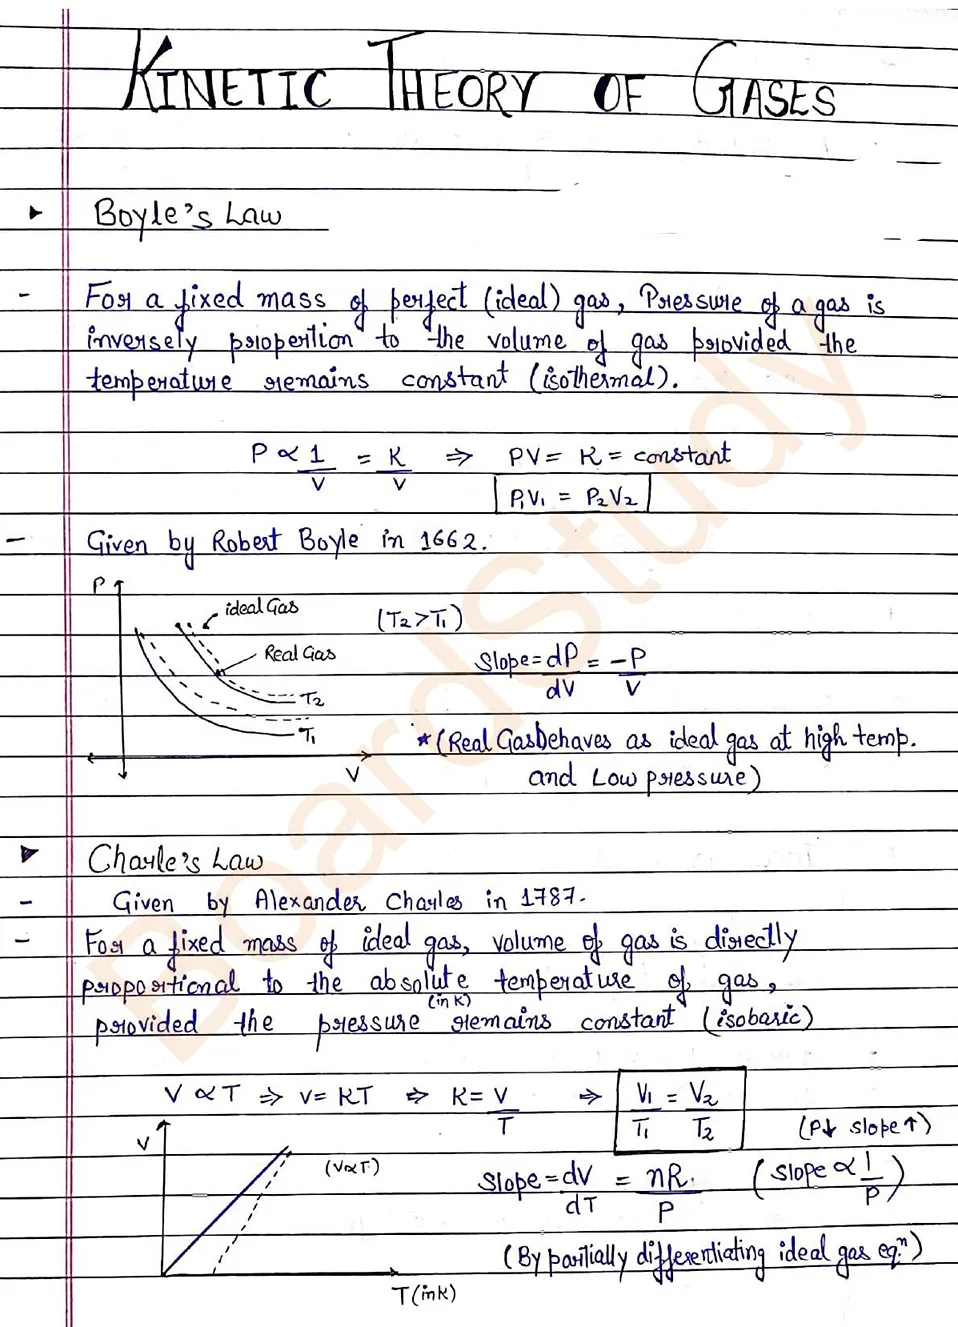 KINETIC THEORY OF GASES
Boyle's Law
- For a fixed mass of perfect (ideal) gas, Pressure of a gas is
inversely propertion to the volume of gas provided the
temperature remains constant (isothermal).
P ∝ 1/V = K/V ⇒ PV = K = constant
P₁V₁ = P₂V₂
- Given by Robert Boyle in 1662.
P
ideal Gas
(T₂ > T₁)
Real Gas
Slope = dP/dV = -P/V
T₂
T₁
V
*(Real Gas behaves as ideal gas at high temp.
and Low pressure)
Charle's Law
- Given by Alexander Charles in 1787.
- For a fixed mass of ideal gas, volume of gas is directly
proportional to the absolute temperature of gas,
(in K)
provided the pressure remains constant (isobaric)
V ∝ T ⇒ V = KT ⇒ K = V/T ⇒ V₁/T₁ = V₂/T₂
(P↓ slope↑)
V
(V∝T)
Slope = dV/dT = nR/P (slope ∝ 1/P)
(By partially differentiating ideal gas eqⁿ)
T (in K)
BoardStudy